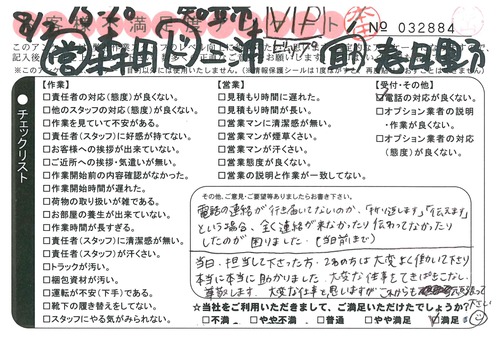 № 032884
チェックリスト
【作業】
□責任者の対応(態度)が良くない。
□他のスタッフの対応(態度)が良くない。
□作業を見ていて不安がある。
□責任者(スタッフ)に好感が持てない。
□お客様への挨拶が出来ていない。
□ご近所への挨拶・気遣いが無い。
□作業開始前の内容確認がなかった。
□作業開始時間が遅れた。
□荷物の取り扱いが雑である。
□お部屋の養生が出来ていない。
□作業時間が長すぎる。
□責任者(スタッフ)に清潔感が無い。
□責任者(スタッフ)が汗くさい。
□トラックが汚い。
□梱包資材が汚い。
□運転が不安(下手)である。
□靴下の履き替えをしてない。
□スタッフにやる気がみられない。
【営業】
□見積もり時間に遅れた。
□見積もり時間が長い。
□営業マンに清潔感が無い。
□営業マンが煙草くさい。
□営業マンが汗くさい。
□営業態度が良くない。
□営業の説明と作業が一致してない。
【受付・その他】
☑電話の対応が良くない。
□オプション業者の説明
・作業が良くない。
□オプション業者の対応
(態度)が良くない。
その他、ご意見・ご要望等ありましたらお書き下さい。
電話の連絡が行き届いてないのか、「折り返します」「伝えます」
という場合、全く連絡が来なかったり伝わってなかったり
したのが困りました。(当日前まで)
当日、担当して下さった方、2名の方は大変よく動いて下さり
本当に本当に助かりました。大変な仕事をてきぱきこなし、
尊敬します。大変な仕事と思いますがこれからも頑張って
下さい
☆当社をご利用いただきまして、ご満足いただけたでしょうか?
□不満 □やや不満 □普通 □やや満足 ☑満足